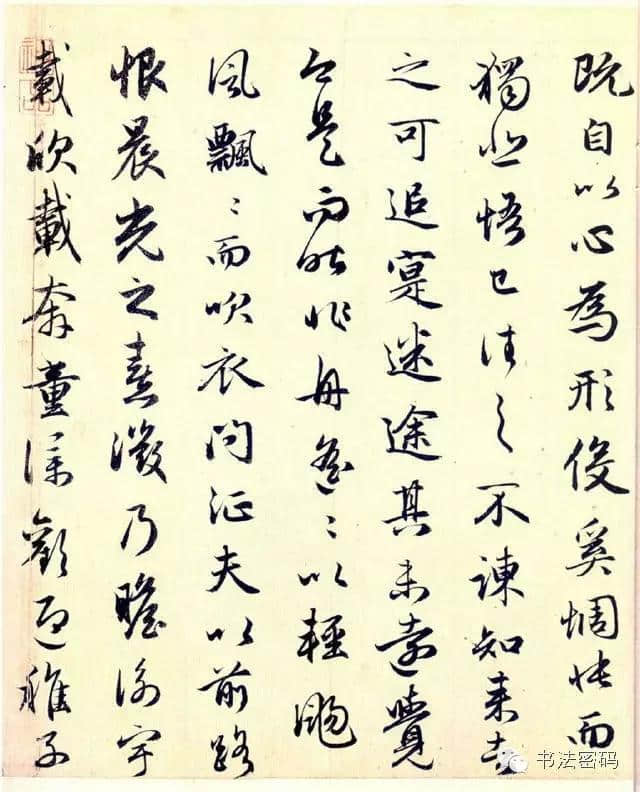 既自以心為形役奚惆悵而
獨悲悟已往之不諫知来者
之可追寔迷途其未遠覺
今是而昨非舟遙〻以輕颺
風飄〻而吹衣問征夫以前路
恨晨光之熹微乃瞻衡宇
載欣載奔童僕歡迎稚子
书法密码